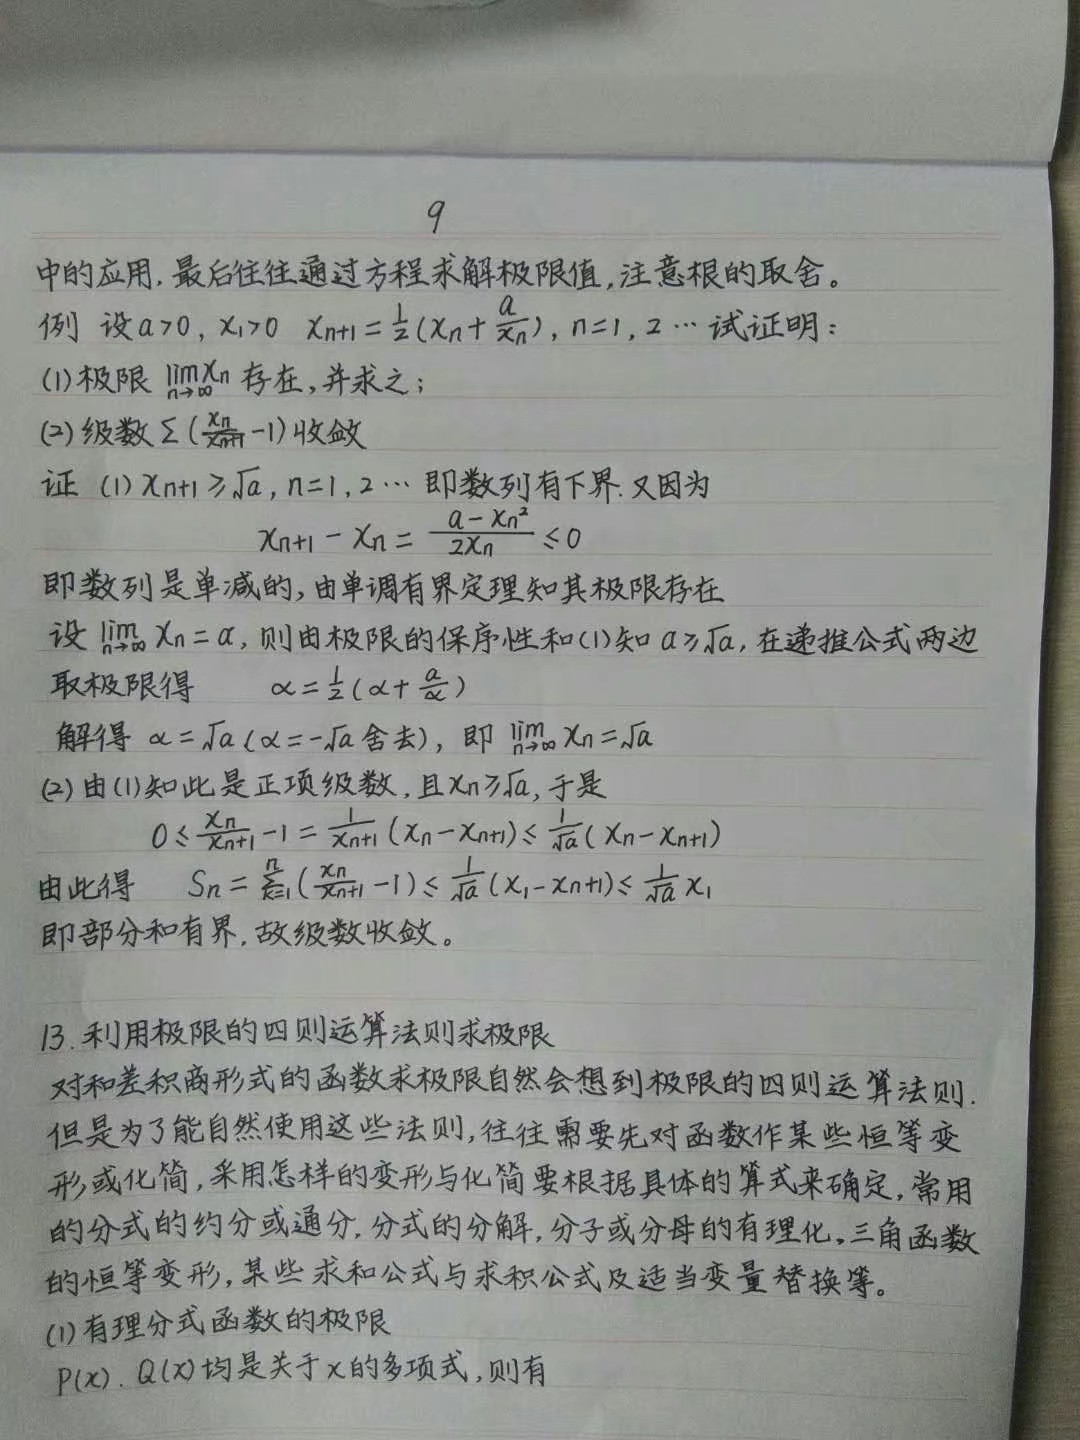 9
中的应用,最后往往通过方程求解极限值,注意根的取舍。
例 设a>0, x₁>0 xₙ₊₁=½(xₙ+a/xₙ), n=1, 2 … 试证明:
(1)极限 lim_{n→∞} xₙ 存在,并求之;
(2)级数Σ(xₙ/xₙ₊₁-1)收敛
证 (1) xₙ₊₁≥√a, n=1, 2 … 即数列有下界.又因为
xₙ₊₁-xₙ=(a-xₙ²)/(2xₙ)≤0
即数列是单减的,由单调有界定理知其极限存在
设 lim_{n→∞} xₙ=α, 则由极限的保序性和(1)知 a≥√a, 在递推公式两边
取极限得 α=½(α+a/α)
解得 α=√a (α=-√a 舍去), 即 lim_{n→∞} xₙ=√a
(2)由(1)知此是正项级数,且xₙ≥√a,于是
0≤xₙ/xₙ₊₁-1=1/xₙ₊₁(xₙ-xₙ₊₁)≤1/√a(xₙ-xₙ₊₁)
由此得 Sₙ=Σ_{k=1}^{n}(xₙ/xₙ₊₁-1)≤1/√a(x₁-xₙ₊₁)≤1/√a x₁
即部分和有界,故级数收敛。
13.利用极限的四则运算法则求极限
对和差积商形式的函数求极限自然会想到极限的四则运算法则.
但是为了能自然使用这些法则,往往需要先对函数作某些恒等变
形或化简,采用怎样的变形与化简要根据具体的算式来确定,常用
的分式的约分或通分,分式的分解,分子或分母的有理化,三角函数
的恒等变形,某些求和公式与求积公式及适当变量替换等。
(1)有理分式函数的极限
P(x).Q(x)均是关于x的多项式,则有